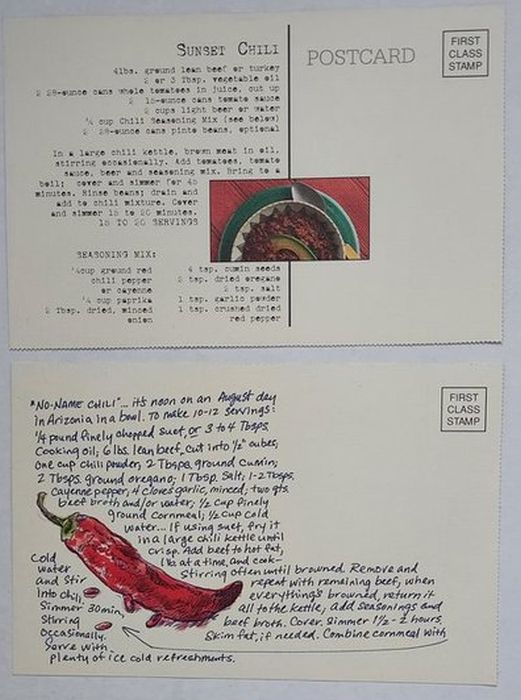 SUNSET CHILI
4lbs. ground lean beef or turkey
2 or 3 Tbsp. vegetable oil
2 28-ounce cans whole tomatoes in juice, cut up
2 15-ounce cans tomato sauce
2 cups light beer or water
¼ cup Chili Seasoning Mix (see below)
2 28-ounce cans pinto beans, optional
In a large chili kettle, brown meat in oil,
stirring occasionally. Add tomatoes, tomato
sauce, beer and seasoning mix. Bring to a
boil; cover and simmer for 45
minutes. Rinse beans; drain and
add to chili mixture. Cover
and simmer 15 to 20 minutes.
15 TO 20 SERVINGS
SEASONING MIX:
¼cup ground red
chili pepper
or cayenne
¼ cup paprika
2 Tbsp. dried, minced
onion
4 tsp. cumin seeds
2 tsp. dried oregano
2 tsp. salt
1 tsp. garlic powder
1 tsp. crushed dried
red pepper
POSTCARD
FIRST
CLASS
STAMP
"NO-NAME CHILI"... it's noon on an August day
in Arizonia in a bowl. To make 10-12 servings:
¼ pound finely chopped suet, or 3 to 4 Tbsps.
Cooking oil; 6 lbs. lean beef, cut into ½" cubes;
one cup chili powder; 2 Tbsps. ground cumin;
2 Tbsps. ground oregano; 1 Tbsp. Salt; 1-2 Tbsps.
Cayenne pepper; 4 cloves garlic, minced; two qts.
beef broth and/or water; ½ cup finely
ground Cornmeal; ½ cup cold
water... If using suet, fry it
in a large chili kettle until
crisp. Add beef to hot fat,
1 lb. at a time, and cook-
Stirring often until browned. Remove and
repeat with remaining beef, when
everything's browned, return it
all to the kettle, add seasonings and
beef broth. Cover. Simmer 1½-2 hours.
Skim fat, if needed. Combine cornmeal with
Cold
water
and Stir
into chili,
Simmer 30 min,
Stirring
Occasionally.
Serve with
plenty of ice cold refreshments.
FIRST
CLASS
STAMP